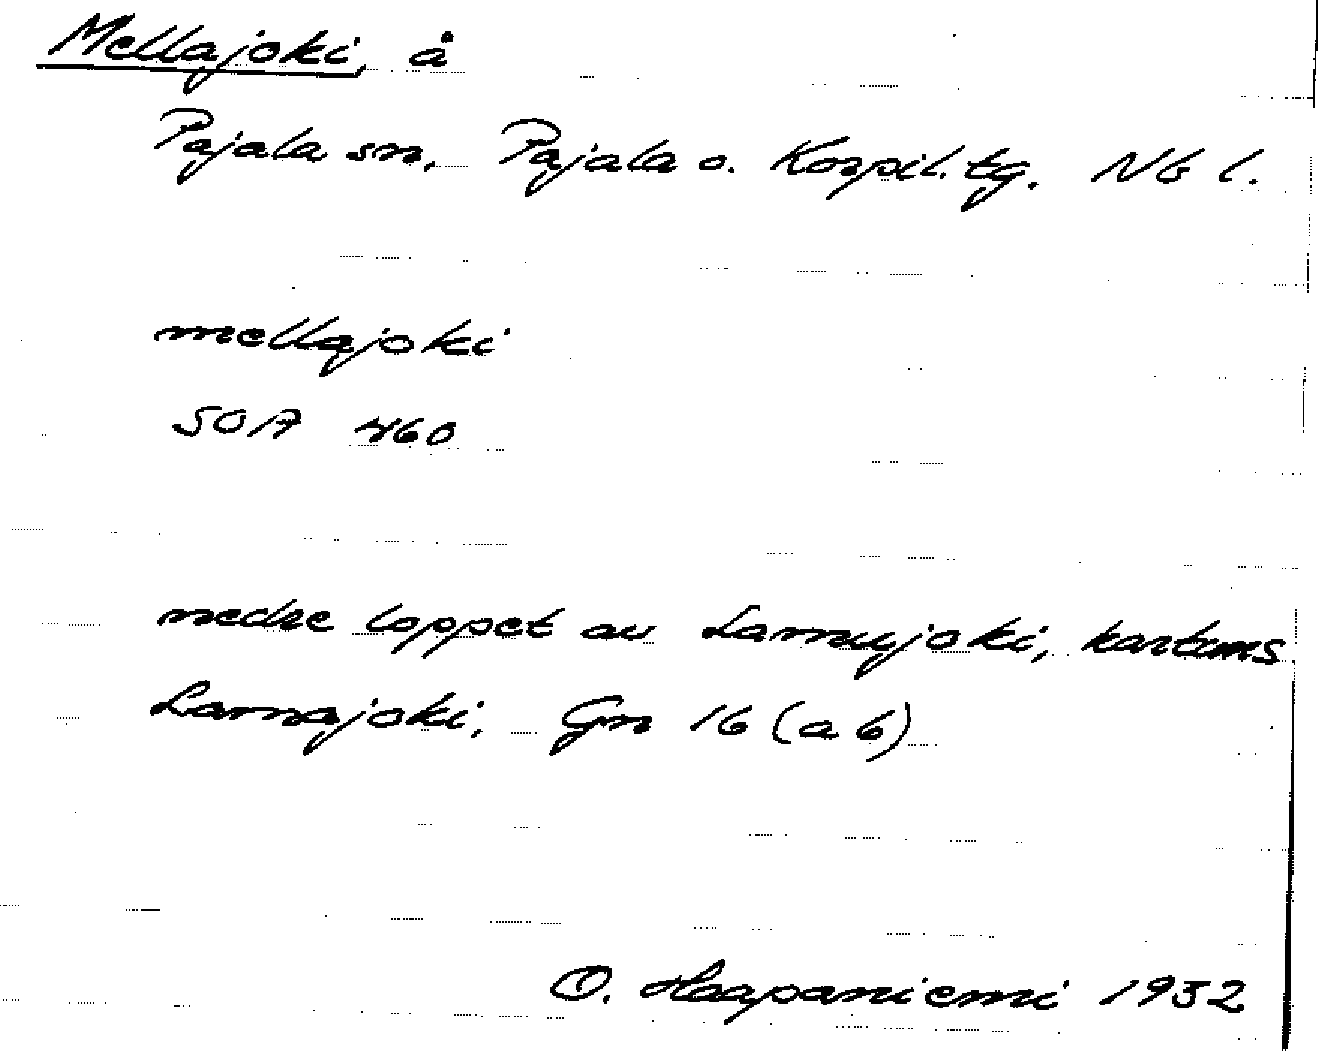 Mellajoki, å
Pajala sn. Pajala o. Korpil. tg. Nb l.
mellajoki
SOA 460
nedre loppet av Larmujoki, kartans
Larnajoki, Gn 16 (a b)
O. Haapaniemi 1932